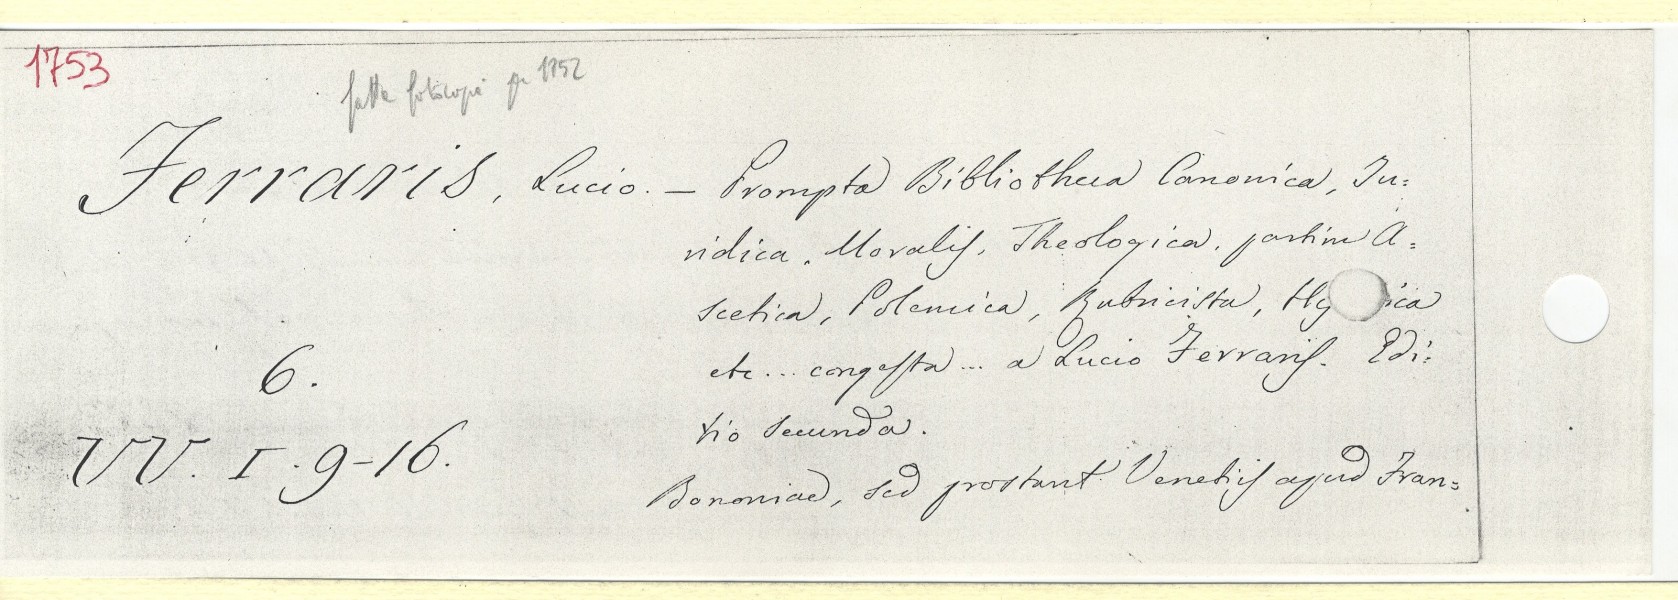 1753
fatta fotocopia per 1752
Ferraris, Lucio. — Prompta Bibliotheca Canonica, Ju=
ridica, Moralis, Theologica, partim A=
scetica, Polemica, Rubricista, Hy ica
etc... congesta... a Lucio Ferraris. Edi=
tio secunda.
6.
VV. I. 9-16.
Bononiae, sed prostant Venetiis apud Fran=